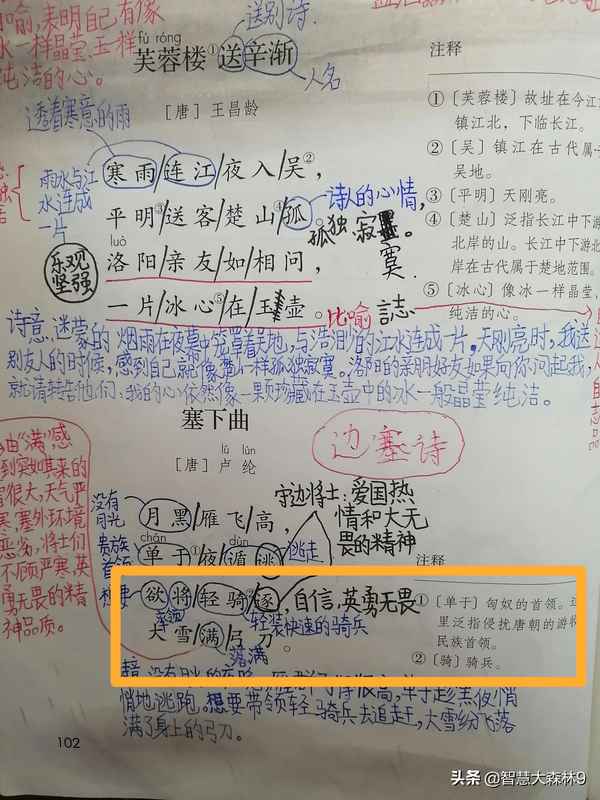 喻,表明自己有像
冰一样晶莹、玉样
纯洁的心。
送别诗.
fú róng
芙蓉楼①送辛渐
人名
[唐] 王昌龄
透着寒意的雨
寒雨/连江/夜入/吴②,
雨水与江
水连成
一片
平明③/送客/楚山④/孤。
诗人的心情,
孤独寂寞
luò
洛阳/亲友/如/相问,
乐观
坚强
一片/冰心⑤/在/玉壶。
比喻
诗意:迷蒙的烟雨在夜幕中笼罩着吴地,与浩渺的江水连成一片。天刚亮时,我送
别友人的时候,感到自己就像楚山一样孤独寂寞。洛阳的亲朋好友如果向你问起我,
就请转告他们:我的心依然像一颗珍藏在玉壶中的冰一般晶莹纯洁。
注释
①〔芙蓉楼〕故址在今江
镇江北,下临长江。
②〔吴〕镇江在古代属于
吴地。
③〔平明〕天刚亮。
④〔楚山〕泛指长江中下游
北岸的山。长江中下游北
岸在古代属于楚地范围。
⑤〔冰心〕像冰一样晶莹、
纯洁的心。
塞下曲
lú lún
[唐] 卢纶
边塞诗
由“满”感
到突如其来的
害很大,天气严
寒,塞外环境
恶劣,将士们
不顾严寒,英
勇无畏的精
神品质。
没有
月光
月黑/雁飞/高,
守边将士:爱国热
情和大无
畏的精神
chán dún
贵族
首领
单于①/夜/遁逃
逃走
欲将/轻骑②/逐,
自信,英勇无畏
率领
轻装快速的骑兵
大雪/满/弓刀。
落满
悄地逃跑。想要带领轻骑兵去追赶,大雪纷飞落
满了身上的弓刀。
注释
①〔单于〕匈奴的首领。这
里泛指侵扰唐朝的游牧
民族首领。
②〔骑〕骑兵。
102
头条 @智慧大森林9